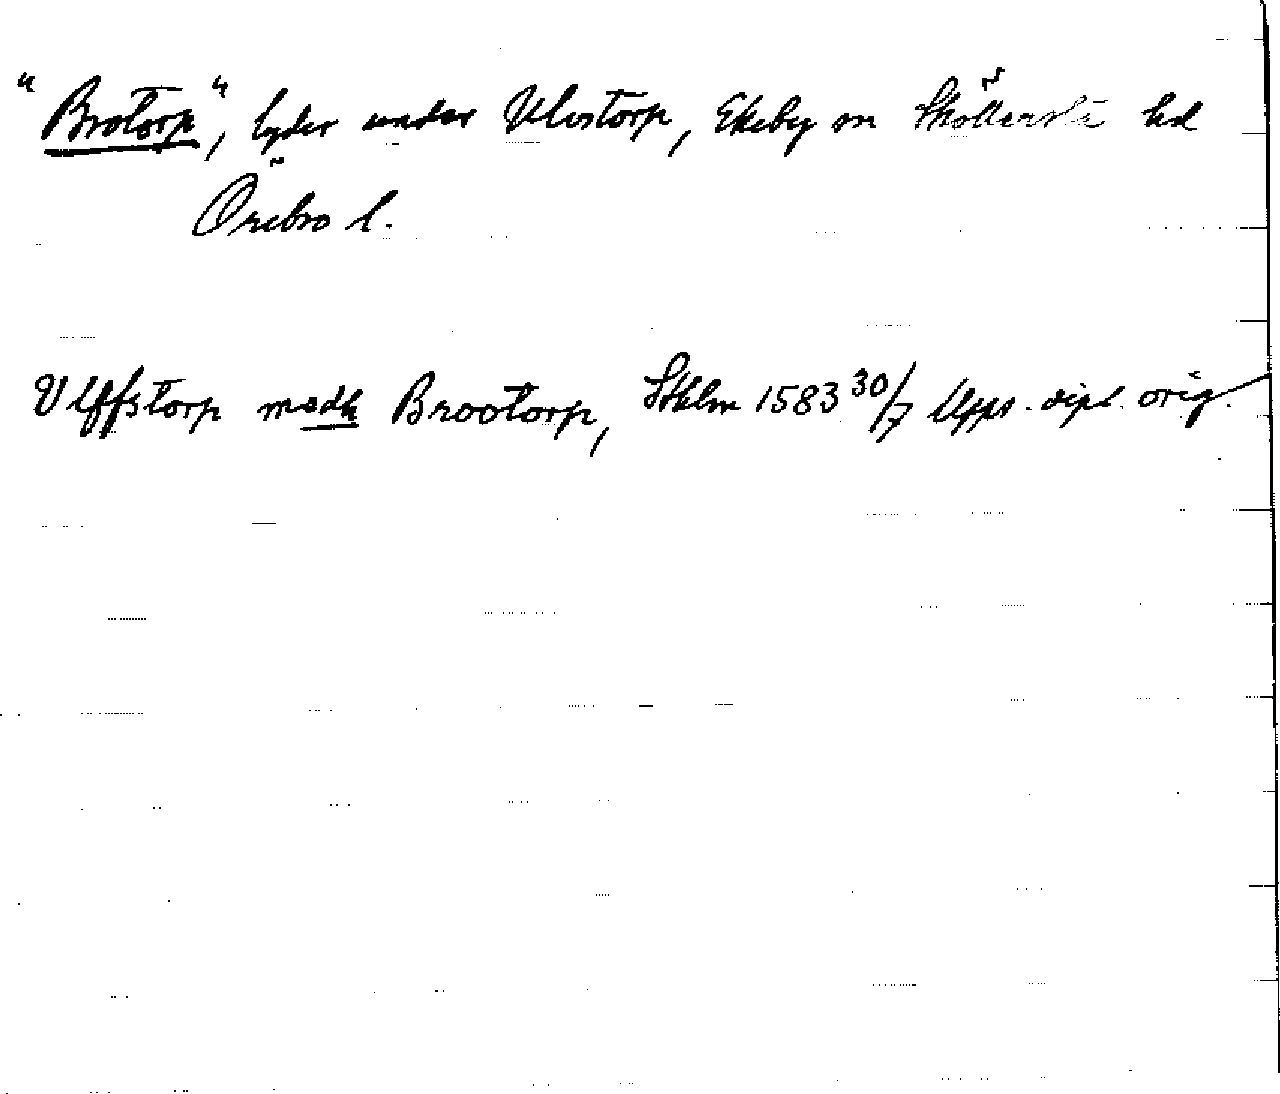 "Brotorp", lyder under Ulvstorp, Ekeby sn Sköllersta hd
Örebro l.
Vlffstorp medh Brootorp, Sthlm 1583 30/7 Upps. dipl. orig.